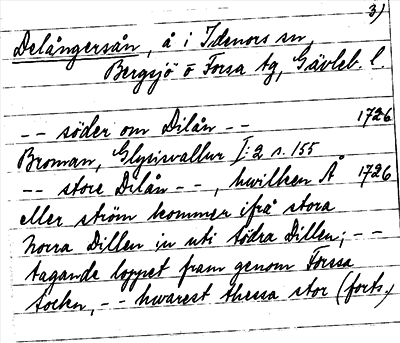 3)
Delångersån, å i Idenors sn,
Bergsjö o Forsa tg, Gävleb. l.
-- söder om Dilån -- 1726
Broman, Glysisvallur I:2 s. 155
-- store Dilån --, hwilken Å 1726
eller ström kommer ifrå stora
Norra Dillen in uti Södra Dillen; --
tagande loppet fram genom Forssa
Sockn, -- hwarest thessa stor (forts.)